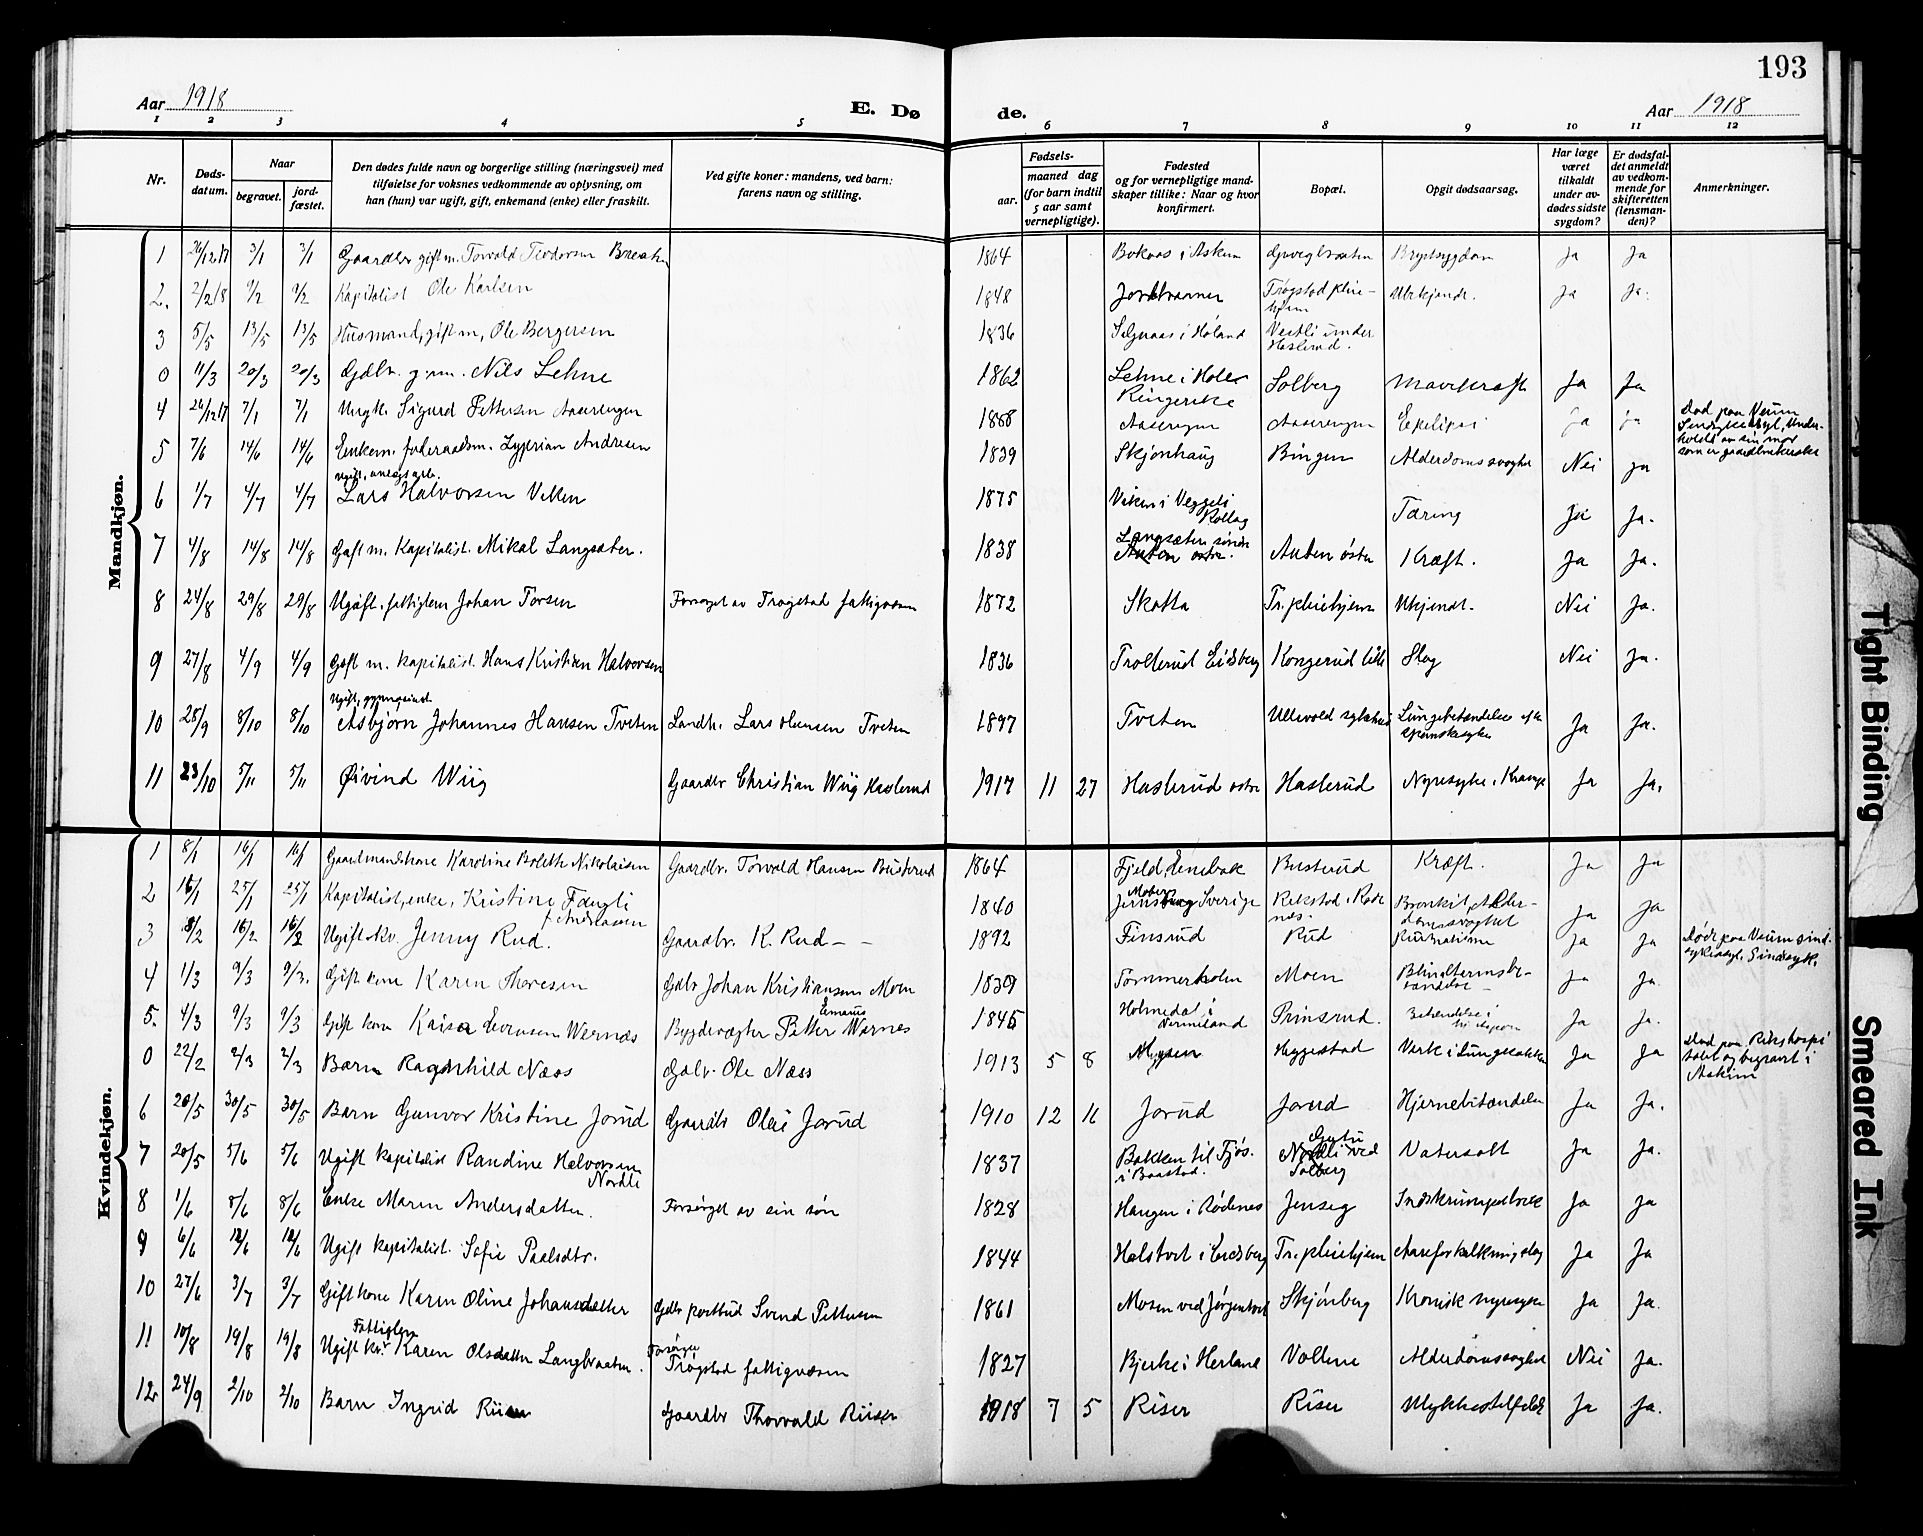 193
Aar 1918 E. Dø
de. Aar 1918
1 2 3 4 5 6 7 8 9 10 11 12
Nr. Døds-datum. Naar begravet. jord-fæstet. Den dødes fulde navn og borgerlige stilling (næringsvei) med tilføielse for voksnes vedkommende av oplysning, om han (hun) var ugift, gift, enkemand (enke) eller fraskilt. Ved gifte koner: mandens, ved barn: farens navn og stilling. Fødsels- aar. maaned dag (for barn indtil 5 aar samt vernepligtige). Fødested og for vernepligtige mand-skaper tillike: Naar og hvor konfirmert. Bopæl. Opgit dødsaarsag. Har læge været tilkaldt under av-dødes sidste sygdom? Er dødsfal-det anmeldt av vedkom-mende for skifteretten (lensman-den)? Anmerkninger.
Mandkjøn.
1 26/12 17 3/1 3/1 Gaardbr gift m. Torvald Teodorsen 1864 i Askim Brystsygdom Ja Ja
2. 2/2 18 9/2 9/2 Kapitalist Ole Karlsen 1848 Trøgstad pleie-hjem Ukjendt. Ja Ja.
3 5/5 13/5 13/5 Husmand, gift m, Ole Bergersen 1836 i Høland Vestli under Haslerud.
0 11/3 20/3 20/3 Gdbr. g.m. Nils Lehne 1862 Lehne i Hole Ringerike Solberg Mavekræft Ja Ja
4 26/12 17 7/1 7/1 Ungk. Sigurd Pettersen Aaserengen 1888 Aaserengen Aaserengen Epelipsi ja ja Død paa Veum Sindsykeasyl, Under-holdt av sin mor som er gaardbrukerske
5 7/6 14/6 14/6 Enkem. foderaadsm. Zyprian Andresen 1839 Skjønhaug Bingen Alderdomssvaghet Nei ja
6 1/7 4/7 4/7 Ugift, anlægsarb. Lars Halvorsen Viken 1875 Viken i Veggeli Rollag Tæring Ja Ja.
7 4/8 14/8 14/8 Gift m. Kapitalist. Mikal Langsæter. 1838 Langsæter søndre Auten østre. Auten østre Kræft. Ja Ja.
8 24/8 29/8 29/8 Ugift. fattiglem Johan Torsen Forsørget av Trøgstad fattigvæsen 1872 Skotta Tr. pleiehjem Ukjendt. Nei Ja.
9 27/8 4/9 4/9 Gift m. kapitalist. Hans Kristian Halvorsen 1836 Trollerud Eidsberg Kongerud lille Slag Nei Ja.
10 28/9 8/10 8/10 Ugift, gymnasiast Asbjørn Johannes Hansen Tveten Landh. Lars Hansen Tveten 1897 Tveten Ullevold sykehus Lungebetændelse efter spanskesyke Ja Ja.
11 23/10 5/11 5/11 Øivind Wiig Gaardbr Christian Wiig Haslerud 1917 11 27 Haslerud østre Haslerud Nyresyke, Krampe Ja Ja.
Kvindekjøn.
1 8/1 16/1 16/1 Gaardmandskone Karoline Bolette Nikolaisen Gaardbr. Torvald Hansen Busterud 1864 Fjeld, Enebak Busterud Kræft. Ja Ja
2 15/1 25/1 25/1 Kapitalist, enke, Kristine Faugli f. Andreassen 1840 Sverige Rekstad i Røde-næs. Bronkit, Alder-domssvaghet Ja Ja
3 8/2 16/2 16/2 Ugift kv. Jenny Rud. Gaardbr. K. Rud - - 1892 Finsrud Rud Ja Ja Død paa Veum sind-sykeasyl, Sindssyk.
4 1/3 9/3 9/3. Gift kone Karen Thoresen Gdbr Johan Kristiansen Moen 1839 Tømmerholen Moen Blindtarmsbe-tændelse Ja Ja.
5. 4/3 9/3 9/3 Gift kone Kaisa Evensen Wernæs Bygdevægter Petter Emanus Wernes 1845 Holmedal i Vermeland Prinsrud. Betændelse i Ja Ja.
0 22/2 2/3 2/3 Barn Ragnhild Næss Gdbr. Ole Næss 1913 5 8 Mysen Heggestad Verk i Lungesækken Ja Ja Død paa Rikshospi-talet og begravet i Askim
6 20/5 30/5 30/5 Barn Gunvor Kristine Jørud Gaardbr Olai Jørud 1910 12 11 Jørud Jørud Hjernebetændelse Ja Ja.
7 20/5 5/6 5/6 Ugift kapitalist Randine Halvorsen Nordli 1837 Bakken til Fjøs. i Baastad. ved Solberg Vatersott Ja Ja.
8 1/6 8/6 8/6 Enke Maren Andersdatter. Forsørget av sin søn 1828 Haugen i Rødenes Jenseg Indskrumpetbrok Ja Ja
9 6/6 12/6 12/6 Ugift kapitalist. Sofie Paalsdtr. 1844 Halstvet i Eidsberg Tr. pleiehjem Aareforkalkning slag Ja Ja
10 27/6 3/7 3/7 Gift kone Karen Oline Johansdatter Gdbr postbud Svend Pettersen 1861 Mosen ved Jørgentvet Skjønberg Kronisk nyresyke Ja Ja.
11 10/8 19/8 19/8 Fattiglem Ugift kv. Karen Olsdatter Langbraaten. Forsørget Trøgstad fattigvæsen 1827 Bjerke i Herland Vollene Alderdomssvaghet Nei Ja.
12 24/9 2/10 2/10 Barn Ingrid Riiser Gaardbr Thorvald Riiser 1918 7 5 Riser Riser Ulykkestilfelde Ja Ja.
Tight Binding
Smeared Ink